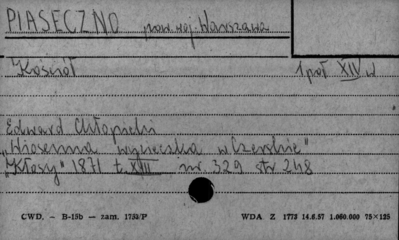 PIASECZNO pow. woj. Warszawa
Kościół 1 poł XIV w
Edward Chłopicki
„Wiosenna wycieczka w Czersku"
„Kłosy" 1871 t. XIII nr. 329 str 248
CWD. — B-15b — zam. 1753/P WDA Z 1773 14.6.57 1.060.000 75×125